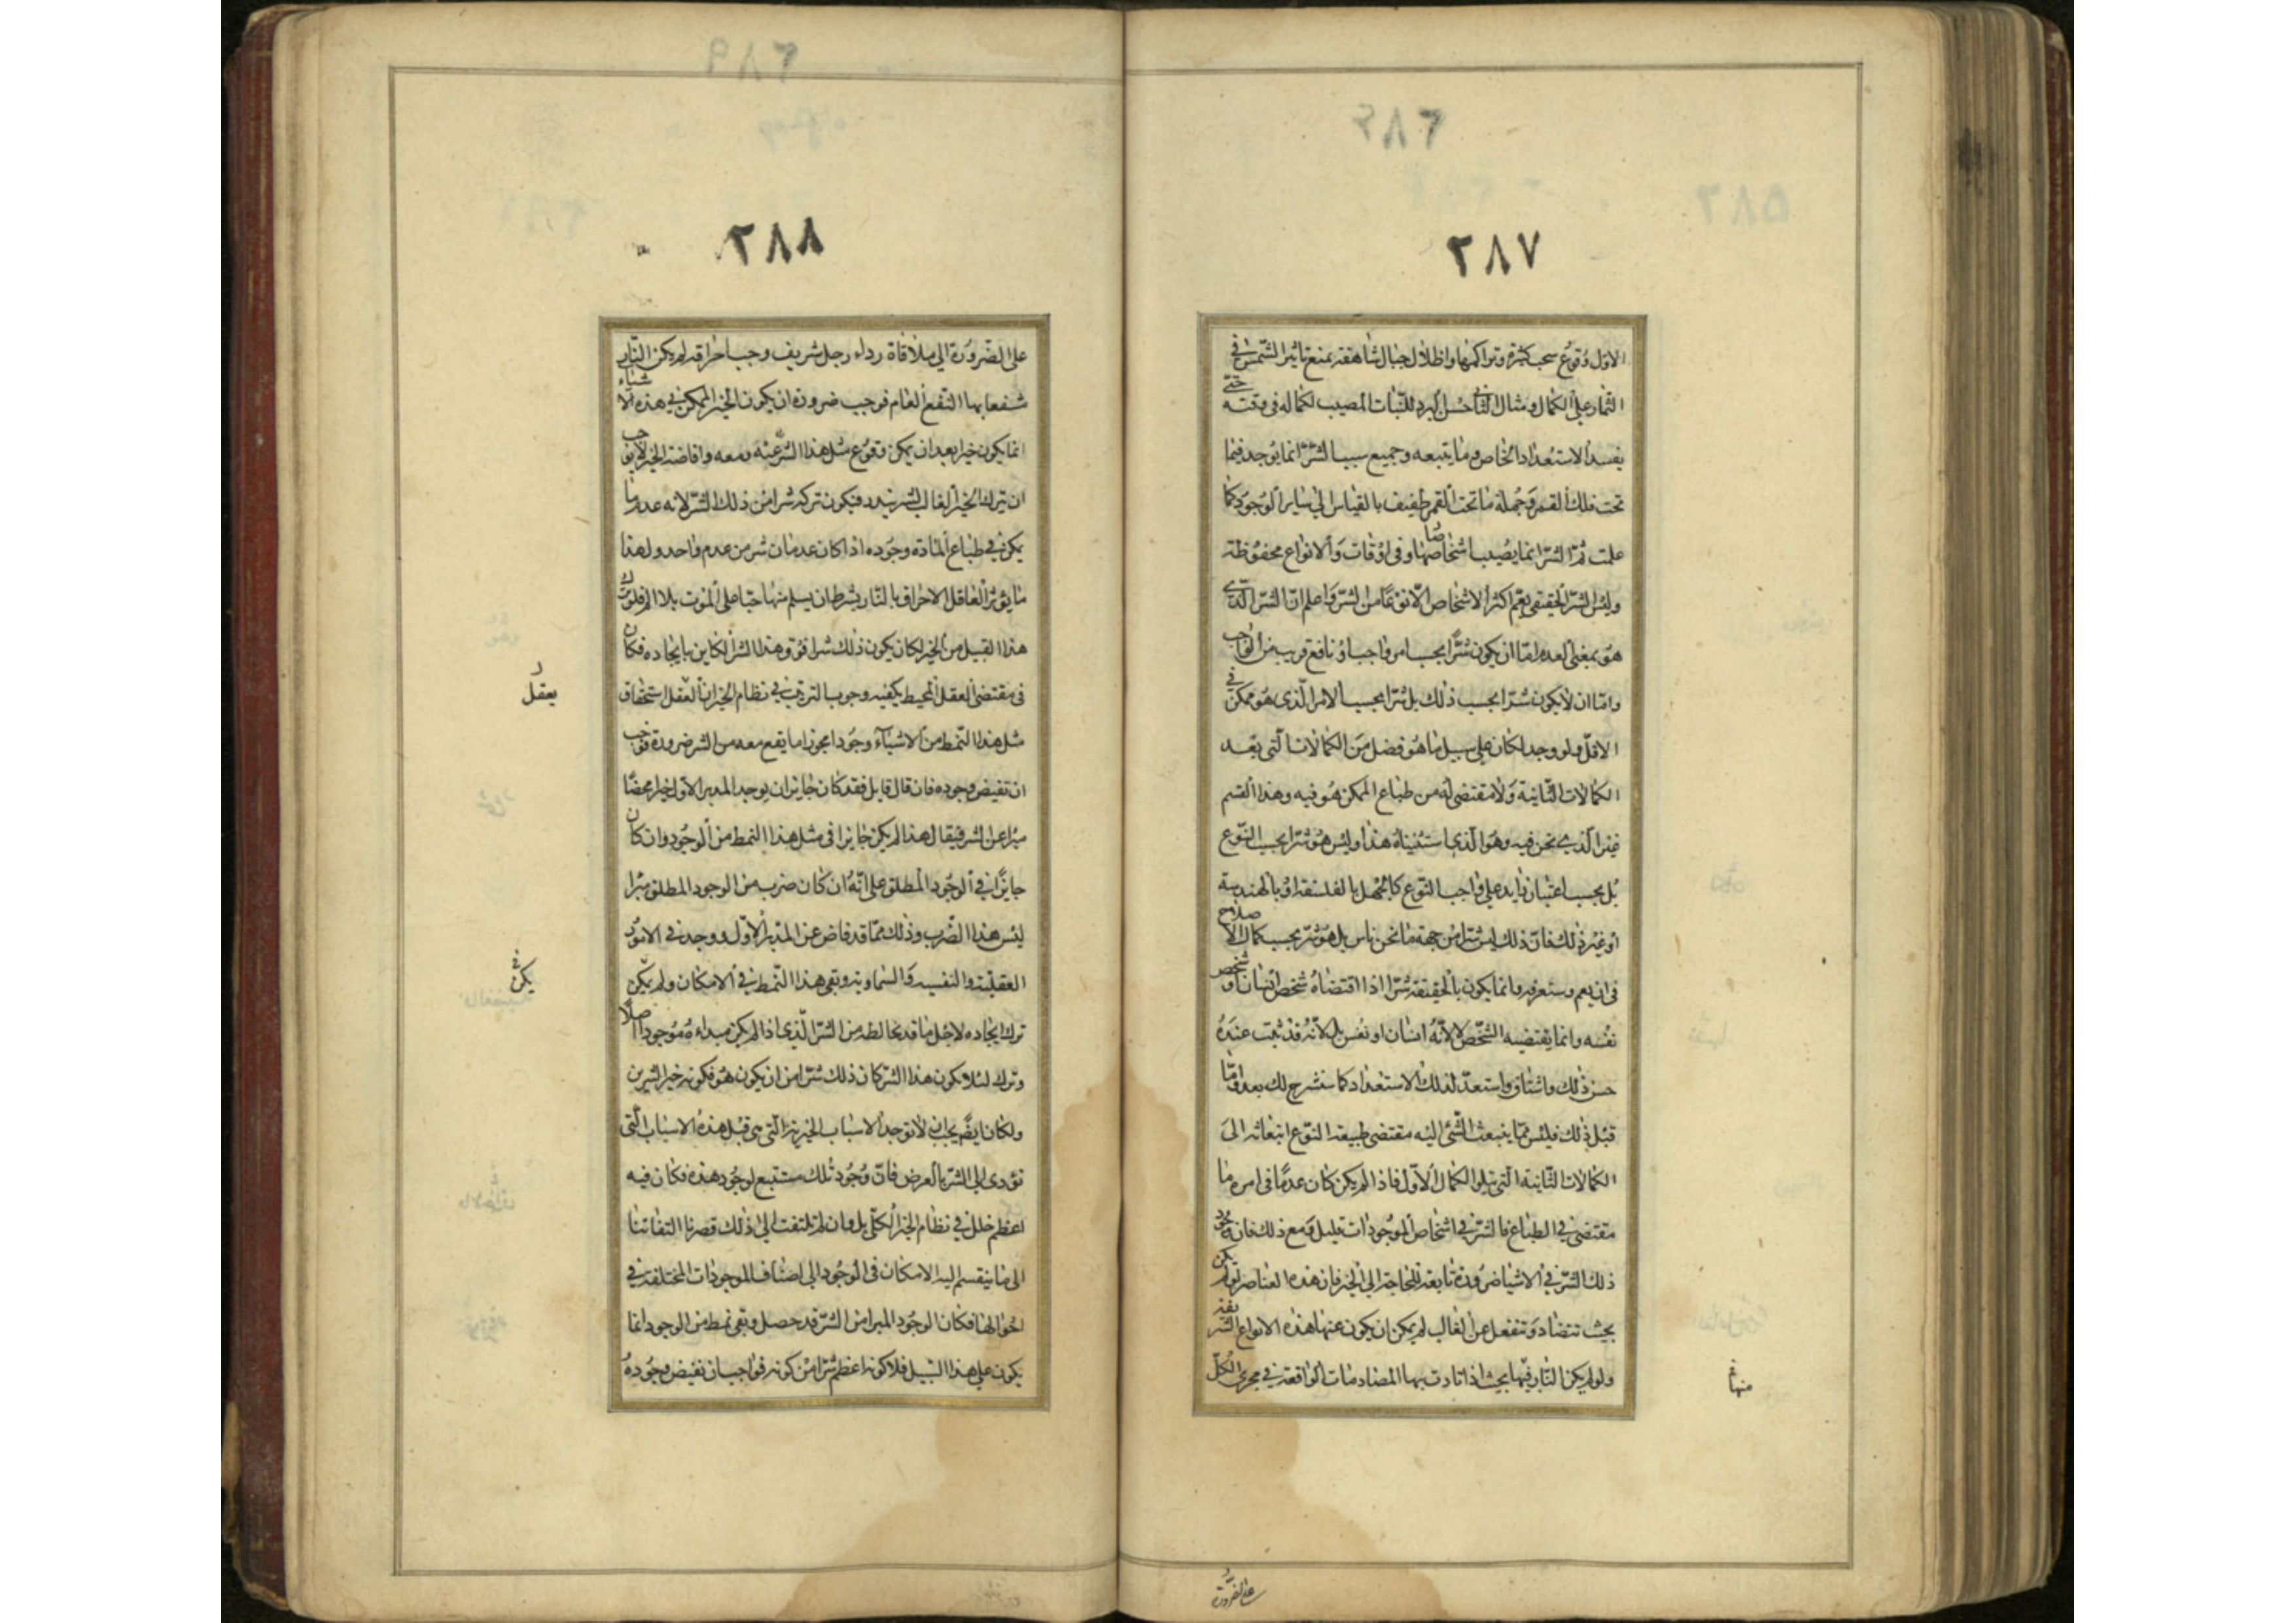 ٢٨٧
الاول وقوع سحب كثيرة وتراكمها واظلال جبال شاهقة يمنع تاثير الشمس في
الثمار على الكمال ومثال الثاني حبس البرد للنبات المصيب لكماله في وقته حتى
يفسد الاستعداد الخاص وما يتبعه وجميع سبب الشر انما يوجد فيما
تحت فلك القمر وجملة ما تحت القمر طفيف بالقياس الى ساير الوجود كما
علمت ثم الشر انما يصيب اشخاصها وفي اوقات والانواع محفوظة
وليس الشر الحقيقي يعم اكثر الاشخاص الا نوعا من الشر واعلم ان الشر الذي
هو بمعنى العدم اما ان يكون شرا بحسب امر واجب او نافع قريب من الواجب
واما ان لا يكون شرا بحسب ذلك بل شرا بحسب الامر الذي هو ممكن في
الاقل ولو وجد لكان على سبيل ما هو فضل من الكمالات التي بعد
الكمالات الثانية ولا مقتضى له من طباع الممكن هو فيه وهذا القسم
غير الذي نحن فيه وهو الذي استثنيناه هذا وليس هو شرا بحسب النوع
بل بحسب اعتبار زايد على واجب النوع كالجهل بالفلسفة او بالهندسة
او غير ذلك فان ذلك ليس شرا من جهة ما نحن ناس بل هو شر بحسب كمال الاصلاح
في ان يعم وستعرفه وانما يكون بالحقيقة شرا اذا اقتضاه شخص انسان او شخص
نفسه وانما يقتضيه الشخص لا لانه انسان او نفس بل لانه قد ثبت عنده
حسن ذلك واشتاق واستعد لذلك الاستعداد كما سنشرح لك بعد واما
قبل ذلك فليس مما ينبعث الشئ اليه مقتضى طبيعة النوع انبعاثه الى
الكمالات الثانية التي تتلو الكمال الاول فاذا لم يكن كان عدما في امر ما
مقتضى في الطباع فالشر في اشخاص الموجودات قليل ومع ذلك فان وجود
ذلك الشر في الاشيا ضرورة تابعة للحاجة الى الخير فان هذه العناصر لو لم يكن
بحيث تتضاد وتنفعل عن الغالب لم يمكن ان يكون عنها هذه الانواع الشريفة
ولو لم يكن النار فيها بحيث اذا تادت بها المصادمات الواقعة في مجرى الكل
منها
على الضرورة
٢٨٨
على الضرورة الى ملاقاة رداء رجل شريف وجب احراقه لم يكن النار
شفعا بها النفع العام فوجب ضرورة ان يكون الخير الممكن في هذه الاشياء
انما يكون خيرا بعد ان يمكن وقوع مثل هذا الشر عنه ومعه وافاضة الخير لا يوجب
ان يترك الخير الغالب لشر يندر فيكون تركه شرا من ذلك الشر لانه عدم ما
يمكن في طباع المادة وجوده اذا كان عدمان شر من عدم واحد ولهذا
ما يؤثر العاقل الاحراق بالنار بشرط ان يسلم منها حيا على الموت بلا الم فلو ترك
هذا القبيل من الخير لكان يكون ذلك شرا فوق هذا الشر الكاين بايجاده فكان
في مقتضى العقل المحيط بكيفيه وجوب الترتيب في نظام الخير ان العقل استحقاق
مثل هذا النمط من الاشياء وجودا مجوزا ما يقع معه من الشر ضرورة فوجب
ان تفيض وجوده فان قال قايل فقد كان جايزا ان يوجد المدبر الاول خيرا محضا
مبرا عن الشر فيقال هذا لم يكن جايزا في مثل هذا النمط من الوجود وان كان
جايزا في الوجود المطلق على انه ان كان ضرب من الوجود المطلق مبرا
ليس هذا الضرب وذلك مما قد فاض عن المدبر الاول ووجد في الامور
العقلية والنفسيه والسماويه وبقى هذا النمط في الامكان ولم يكن
ترك ايجاده لاجل ما قد يخالطه من الشر الذي اذا لم يكن مبداءه موجودا اصلا
وترك لئلا يكون هذا الشر كان ذلك شرا من ان يكون هو فكونه خير الشرين
ولكان ايضا يجب ان لا توجد الاسباب الخيرية التي هي قبل هذه الاسباب التي
تؤدى الى الشر بالعرض فان وجود تلك مستتبع لوجود هذه فكان فيه
اعظم خلل في نظام الخير الكلى بل وان لم نلتفت الى ذلك قصرنا التفاتنا
الى ما ينقسم اليه الامكان في الوجود الى اصناف الموجودات المختلفة في
احوالها فكان الوجود المبرا من الشر قد حصل وبقى نمط من الوجود انما
يكون على هذا السبيل فلا كونه اعظم شرا من كونه فواجب ان تفيض وجوده
يعقل
يكن في